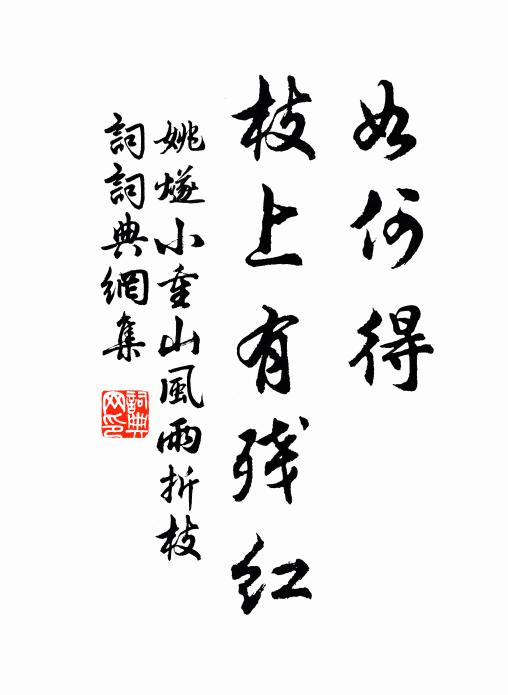 如何得
枝上有残红
姚燧小重山風雨折枝
詞詞典網集
詞典网印